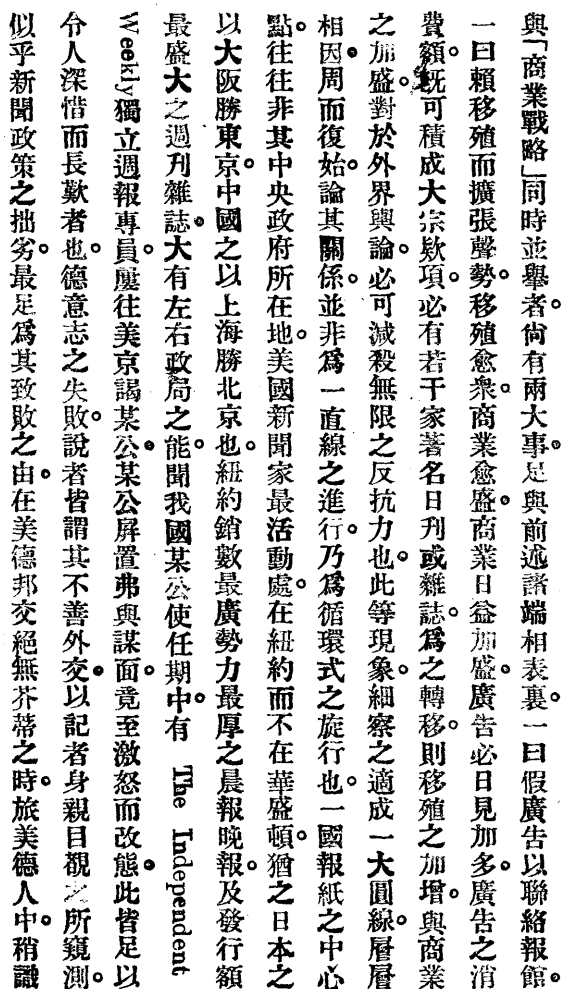 與「商業戰略」同時並舉者。尙有兩大事。足與前述諸端相表裏。一曰假廣告以聯絡報館。
一曰賴移殖而擴張聲勢。移殖愈衆。商業愈盛。商業日益加盛。廣告必日見加多。廣告之消
費額。旣可積成大宗欵項。必有若干家著名日刊或雜誌。爲之轉移。則移殖之加增。與商業
之加盛。對於外界輿論。必可減殺無限之反抗力也。此等現象。細察之適成一大圓線。層層
相因。周而復始。論其關係。並非爲一直線之進行。乃爲循環式之旋行也。一國報紙之中心
點。往往非其中央政府所在地。美國新聞家最活動處。在紐約而不在華盛頓。猶之日本之
以大阪勝東京。中國之以上海勝北京也。紐約銷數最廣勢力最厚之晨報晚報。及發行額
最盛大之週刊雜誌。大有左右政局之能。聞我國某公使任期中。有 The Independent
Weekly獨立週報專員。屢往美京謁某公。某公屛置弗與謀面。竟至激怒而改態。此皆足以
令人深惜而長歎者也。德意志之失敗。說者皆謂其不善外交。以記者身親目覩之所窺測。
似乎新聞政策之拙劣。最足爲其致敗之由。在美德邦交絕無芥蒂之時。旅美德人中。稍識